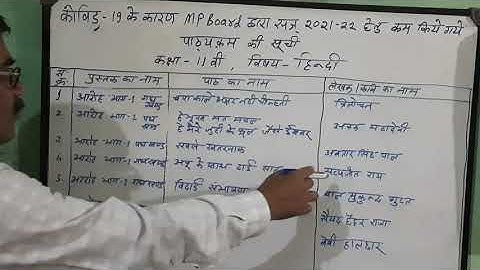 कोविड-19 के कारण MP Board द्वारा सत्र 2021-22 हेतु कम किये गये
पाठ्यक्रम की सूची
कक्षा - 11वी, विषय - हिन्दी
स. क्र. पुस्तक का नाम पाठ का नाम लेखक/कवि का नाम
1 आरोह भाग-1 पद्य खण्ड चंपा काले अक्षर नहीं चीन्हती त्रिलोचन
2 आरोह भाग-1 पद्य खण्ड हे भूख मत मचल
हे मेरे जूही के फूल जैसे ईश्वर अक्क महादेवी
3 आरोह भाग-1 पद्यखण्ड सबसे खतरनाक अवतार सिंह पाश
4 आरोह भाग-1 गद्यखण्ड अपू के साथ ढाई साल सत्यजीत राय
5 आरोह भाग-1 गद्यखण्ड विदाई संभाषण बाल मुकुन्द गुप्त
सैयद हैदर रजा
बेबी हालदार